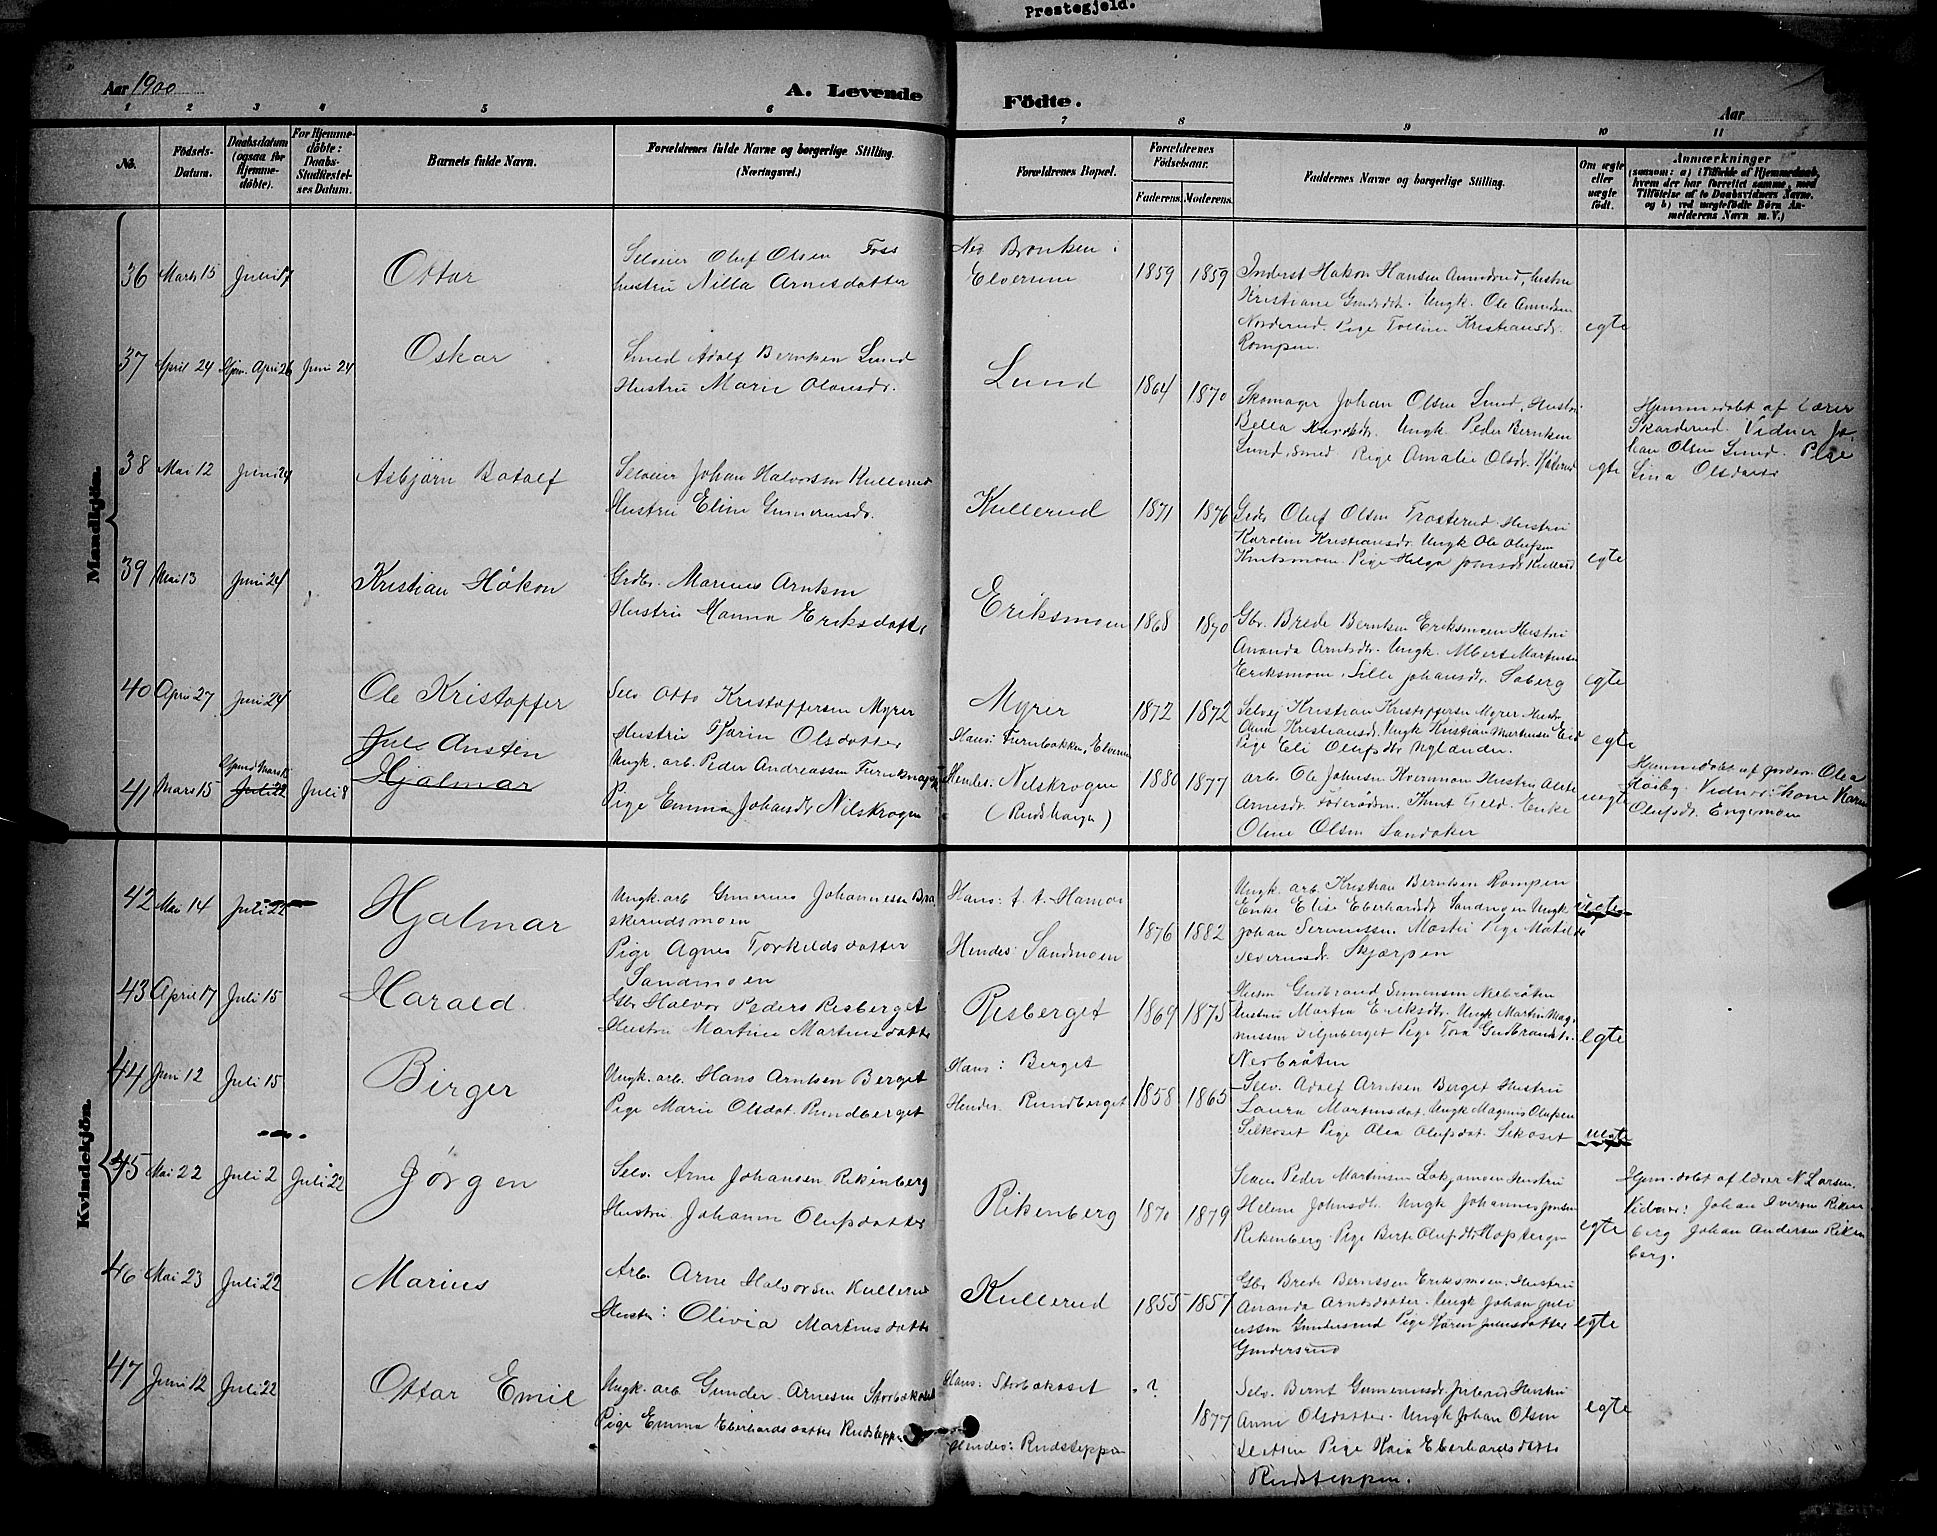 Prestegjeld.
Aar 1900
A. Levende Födte.
Aar
1 2 3 4 5 6 7 8 9 10 11
No.
Födsels-Datum.
Daabsdatum (ogsaa for Hjemme-döbte).
For Hjemme-döbte: Daabs-Stadfæstel-ses Datum.
Barnets fulde Navn.
Forældrenes fulde Navne og borgerlige Stilling.
(Næringsvei.)
Forældrenes Bopæl.
Forældrenes Födselsaar.
Faderens. Moderens.
Faddernes Navne og borgerlige Stilling.
Om ægte eller uægte födt.
Anmærkninger
(saasom: a) i Tilfælde af Hjemmedaab,
hvem der har forrettet samme, med
Tilföielse af to Daabsvidners Navne,
og b) ved uægtefödte Börn An-
melderens Navn m. V.)
Mandkjön.
36 Marts 15 Juli 17 Ottar
Selveier Oluf Olsen Foss
Hustru Nilla Arnesdatter
Elverum
1859 1859
Inderst Hakon Hansen
Kristiane Ungk. Ole Amundsen
Norderud. Pige Kristiansdr.
Rompen.
egte
37 April 24 Hjm. April 26 Juni 24 Oskar
Smed Adolf Berntsen Lund
Hustru Marie Olausdr.
Lund
1864 1870
Skomager Johan Olsen Lund, Hustru
Ungk. Peder Berntsen
Lund, Smed Pige Amalie Olsdr.
egte
Hjemmedøbt af Lærer
Skarderud. Vidner Jo-
han Olsen Lund. Pige
Lina Olsdatter
38 Mai 12 Juni 24 Asbjørn Botolf
Selveier Johan Halvorsen Kullerud
Hustru Eline Guneriusdr.
Kullerud
1871 1876
Oluf Olsen Trosterud Hustru
Karolin Kristiansdr. Ungk Ole Olufsen
Knutsmoen Pige Helga Johnsdr Kullerud
egte
39 Mai 13 Juni 24 Kristian Håkon
Grdbr. Marius Arntsen
Hustru Hanna Eriksdatter
Eriksmoen
1868 1870
Gbr. Brede Berntsen Eriksmoen Hustru
Ananda Arntsdtr. Ungk. Albert Martinsen
Eriksmoen. Sille Johansdr. Soberg
egte
40 April 27 Juni 24 Ole Kristoffer
Selv Otto Kristoffersen Myrer
Hustru Karin Olsdatter
Myrer
1872 1872
Selvej Kristian Kristoffersen Myrer Hustr
Anne Kristiansd. Ungk Kristian Martinsen Eid
Pige Eli Olufsdtr Nylander.
egte
41 Mars 15 Hjemd Mars 15 Juli 22 Juli 8
Jul Ansten
Hjalmar
Ungk. arb. Peder Andreassen
Pige Emma Johansdr Nilskrogen
Hans: Furubakken, Elverum
Hendes. Nilskrogen
(Rudshaugen)
1880 1877
arb. Ole Johnsen Kvernmoen Hustru
Arnesdr. Knut Enke
Oline Olsen Sandaker
uegte
Hjemmedøbt af Jordm. Olea
Høiby. Vidner: Kone Karen
Olufsdr. Engesmoen
Kvindekjön.
42 Mai 14 Juli 22 Hjalmar
Ungk. arb Gunerius Johannessen Bra
skerudsmoen
Pige Agnes Torkildsdatter
Sandmoen
Hans: t. t. Hamar
Hendes: Sandmoen
1876 1882
Ungk. arb. Kristian Berntsen Rompen
Enke Elise Eberhardsdr Sandmoen Ungk
Johan Pige Matilde
Severinsdr. Skjærpen
uegte
43 April 17 Juli 15 Harald
Gbr Halvor Peders Risberget
Hustru Martine Martinusdatter
Risberget
1869 1875
Husm Gudbrand Simensen Nerbråten
Hustru Martea Eriksdtr. Ungk Martin Mag-
nussen Siljuberget Pige Tora Gudbrandsd.
Nerbråten
egte
44 Juni 12 Juli 15 Birger
Ungk. arb. Hans Arntsen Berget
Pige Marie Olsdat. Rundberget
Hans: Berget
Hendes. Rundberget
1858 1865
Selv. Adolf Arntsen Berget Hustru
Laura Martinsdat. Ungk Magnus Olufsen
Silkoset Pige Olea Olufsdat. Silkoset
uegte
45 Mai 22 Juli 2 Juli 22 Jörgen
Selv. Arne Johansen Rikenberg
Hustru Johanne Olufsdatter
Rikenberg
1870 1879
Peder Martinsen Hustru
Helene Johnsdtr. Ungk Johannes Jonsen
Rikenberg. Pige Berte Olufsdtr
egte
Hjem-døbt af lærer N. Larsen.
Vidner: Johan Iversen Riken
berg Johan Andersen Riken
berg.
46 Mai 23 Juli 22 Marius
Arb. Arne Halvorsen Kullerud
Hustru: Olivia Martinusdatter
Kullerud
1855 1857
Gbr Brede Berntsen Eriksmoen. Hustru
Ananda Arntsdatter. Ungk Johan Juli
ussen Gundersrud Pige Karen Juliusdatter
Gundersrud
egte
47 Juni 12 Juli 22 Ottar Emil
Ungk. arb Gunder Arnesen Storbækoset
Pige Emma Eberhardsdatter Rudsteppen
Hans: Storbækoset
Hendes: Rudsteppen
? 1877
Selv. Bernt Hustru
Anne Olsdatter. Ungk Johan Olsen
Pige Kaia Eberhardsdatter
Rudsteppen.
egte